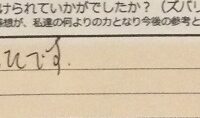 けられていかがでしたか？（ズバリ
感想が、私達の何よりの力となり今後の参考と
ひです。